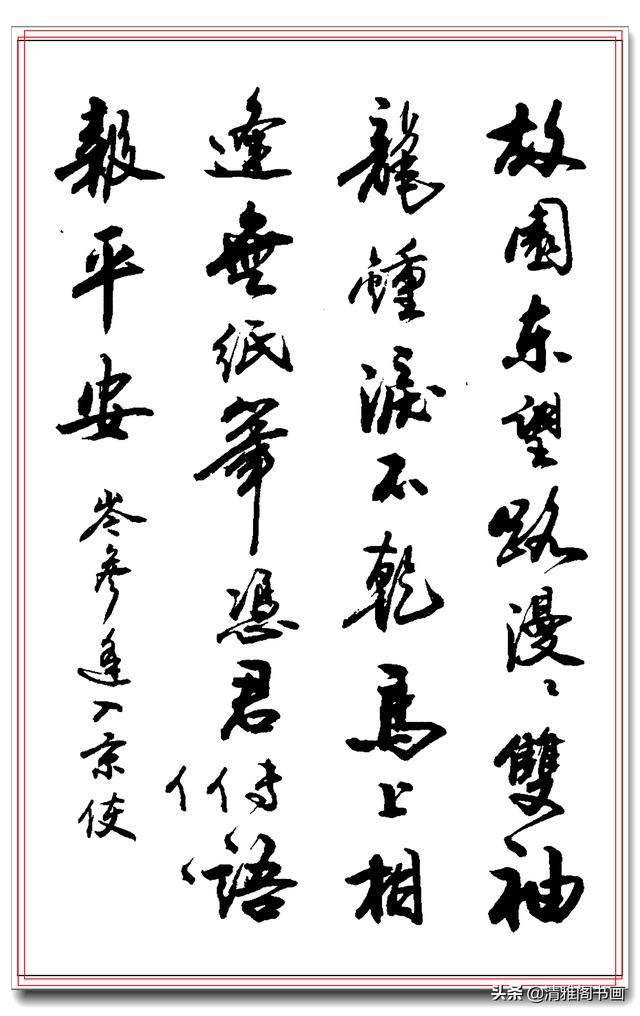 故園东望路漫〻雙袖
龍鍾淚不乾馬上相
逢無纸筆憑君传語
報平安
岑参逢入京使
头条 @清雅阁书画